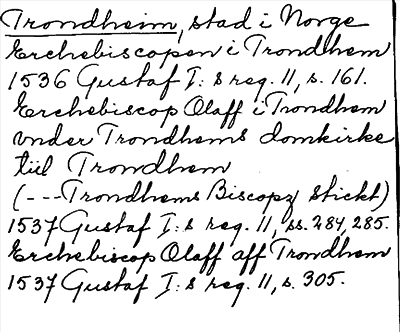 Trondheim, stad i Norge
Erchebiscopen i Trondhem
1536 Gustaf I: s reg. 11, s. 161.
Erchebiscop Olaff i Trondhem
vnder Trondhems domkirke
tiil Trondhem
(---Trondhems Biscopz stickt)
1537 Gustaf I: s reg. 11, ss. 284, 285.
Erchebiscop Olaff aff Trondhem
1537 Gustaf I: s reg. 11, s. 305.